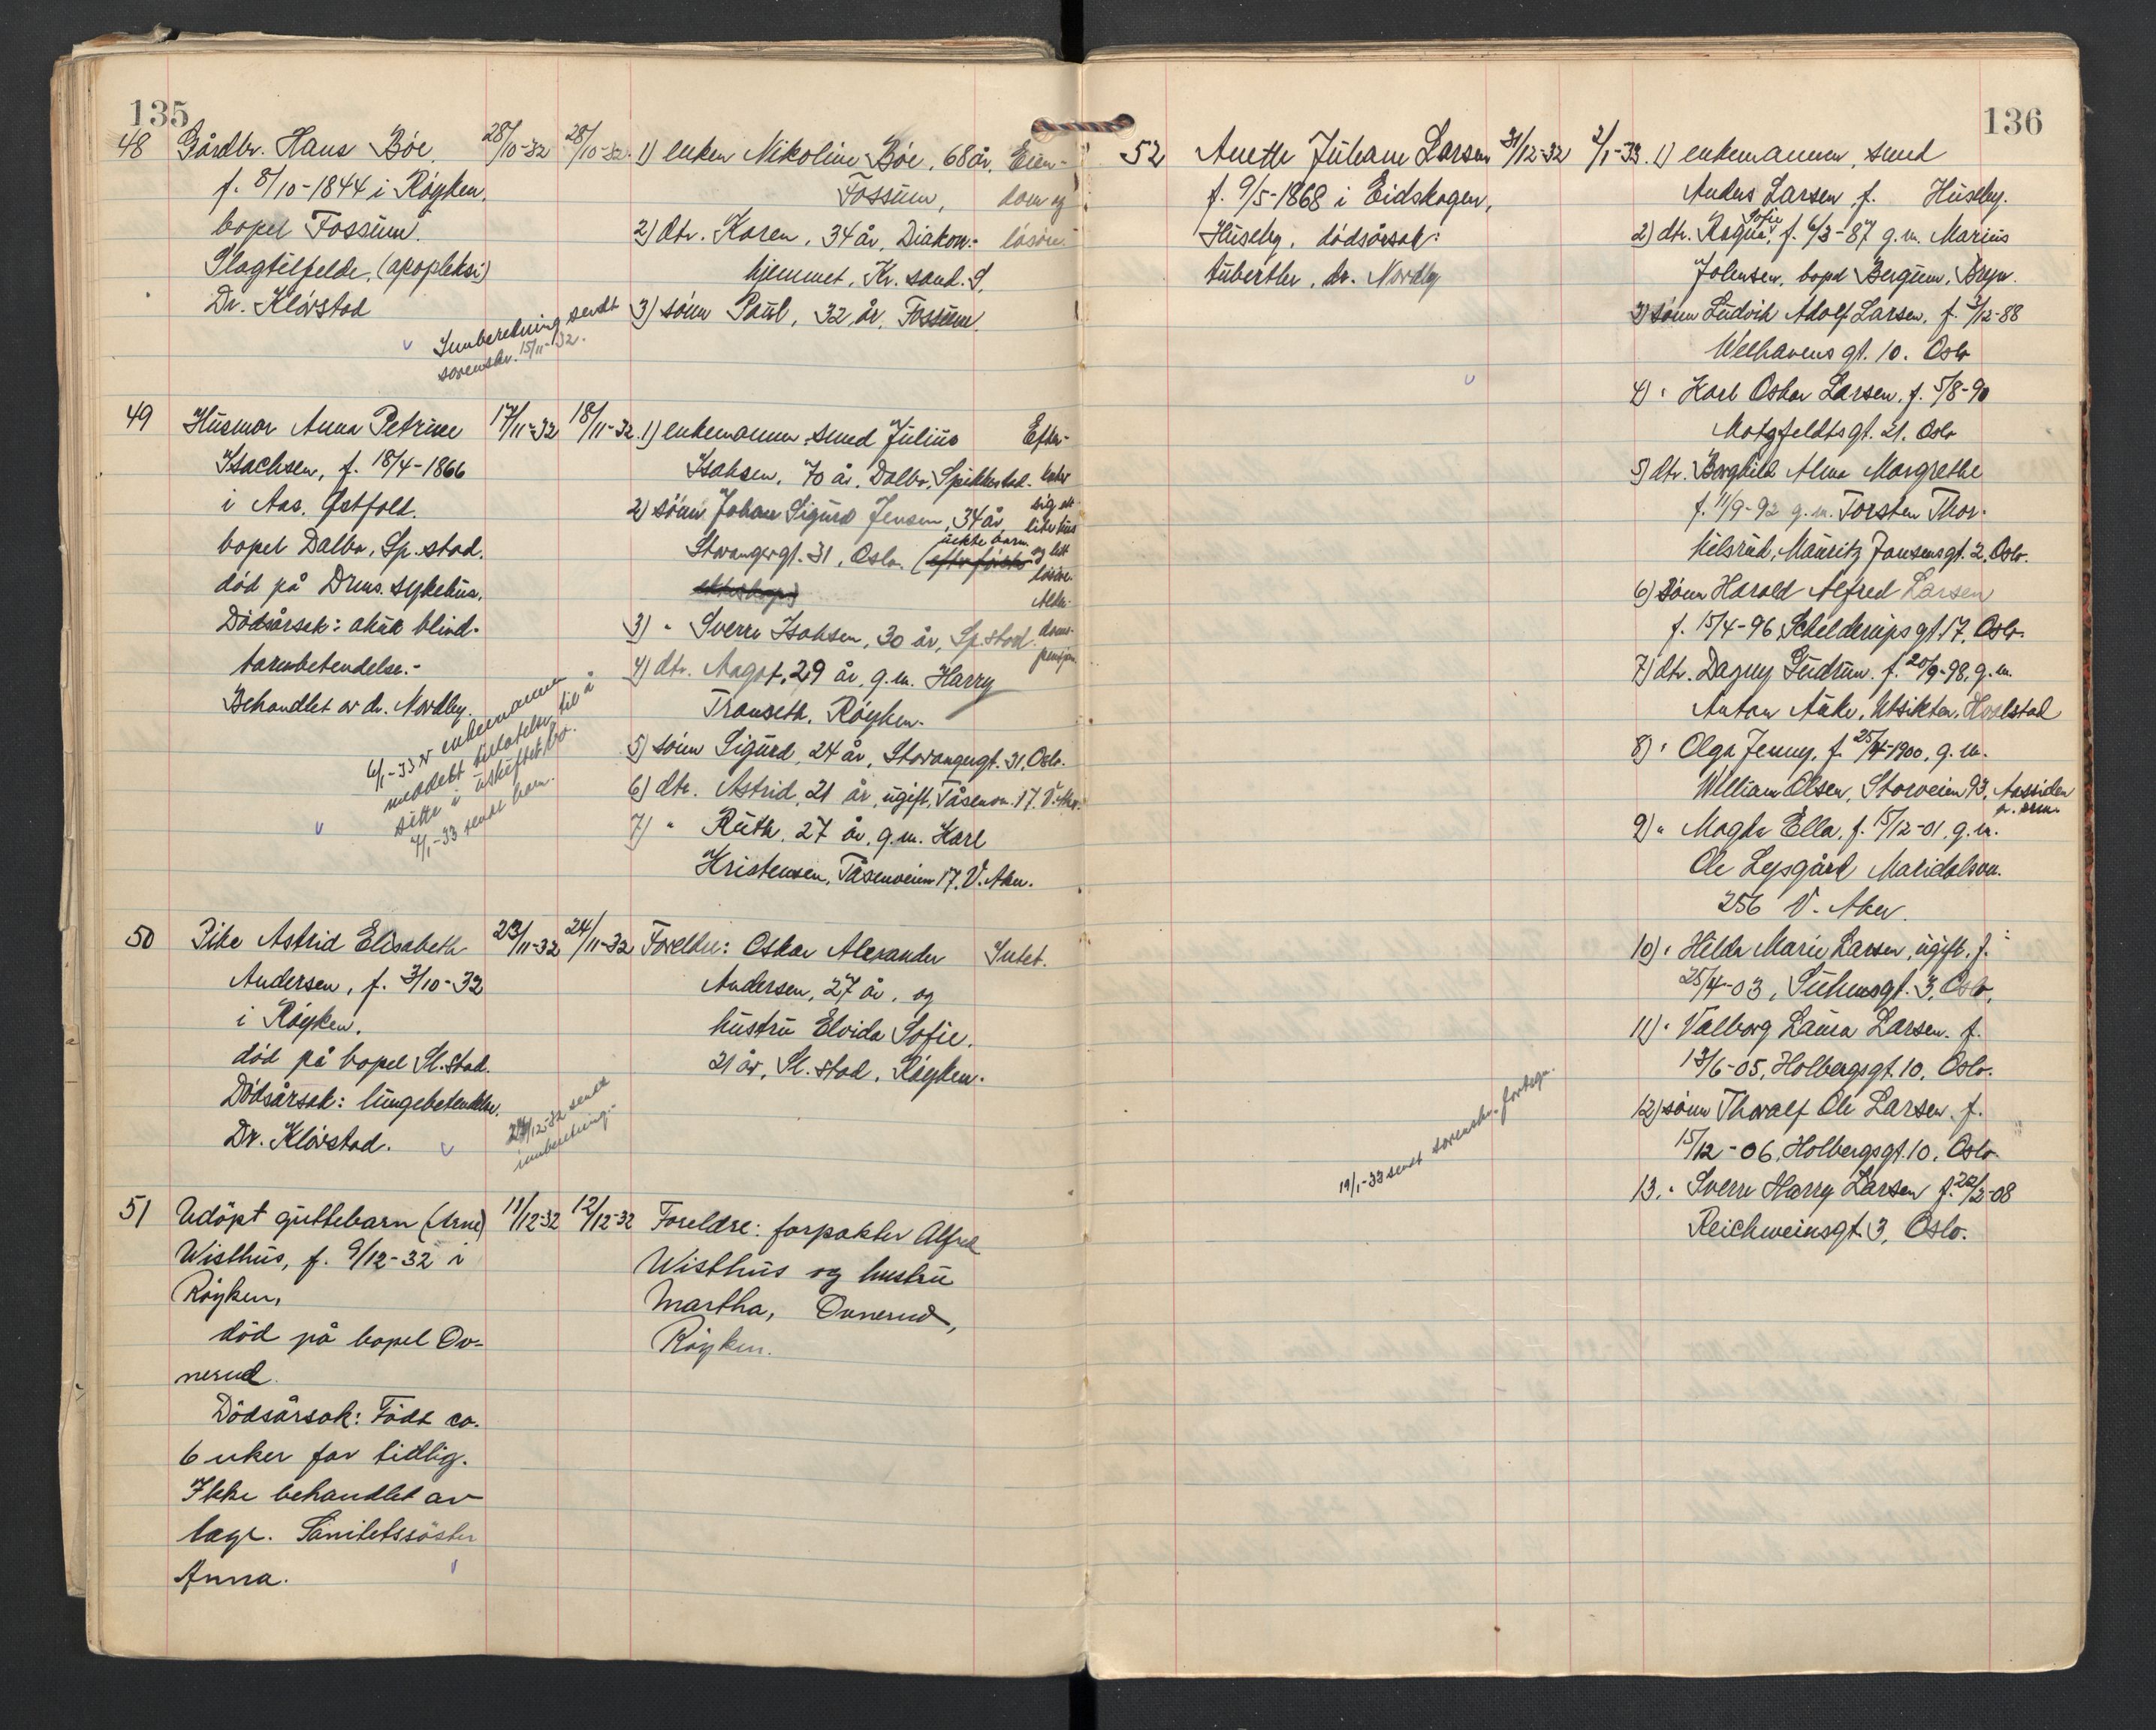 135
48 Gårdbr. Hans Bøe, 28/10-32 28/10-32. 1) enken Nikoline Bøe, 68 år, Eien-
f. 8/10-1844 i Røyken. Fossum, dom og
bopel Fossum. 2) Dtr. Karen, 34 år, Diakon- løsøre.
Slagtilfelde, (apopleksi) hjemmet, Kr. sand. S.
Dr. Klövstad 3) sønn Paul, 32 år, Fossum.
Innberetning sendt
sorenskr. 15/11-32.
49 Husmor Anna Petrine 17/11-32 18/11-32. 1) enkemannen, smed Julius Efter-
Isachsen, f. 18/4-1866 Isaksen, 70 år, Dalbo, Spikkestad. later
i Aas, Østfold. 2) sønn Johan Sigurd Jensen, 34 år, sig et
bopel Dalbo, Sp.stad. Stavangergt. 31, Oslo. (uekte barn lite hus
død på Drms. sykehus. og litt
Dödsårsak: akut blind- løsøre.
tarmbetendelse.- 3) " Sverre Isaksen, 30 år, Sp.stad. Alder-
Behandlet av dr. Nordby. 4) dtr. Aagot, 29 år, g.m. Harry doms-
Transeth, Røyken. pensjon.
6/1-33 er enkemannen
meddelt tillatelse til å
sitte i uskiftet bo.
7/1-33 sendt ham.
5) sönn Sigurd, 24 år, Stavangergt. 31, Oslo.
6) dtr. Astrid, 21 år, ugift, Tåsenvn. 17. V. Aker.
7) " Ruth, 27 år, g.m. Karl
Kristensen, Tåsenveien 17. V. Aker.
50 Pike Astrid Elisabeth 23/11-32 24/11-32 Foreldre: Oskar Alexander Intet.
Andersen, f. 3/10-32 Andersen, 27 år, og
i Røyken. hustru Elvida Sofie.
død på bopel Sl.stad. 21 år, Sl. stad, Røyken.
Dödsårsak: lungebetendelse.
Dr. Klövstad.
12-32 sendt
innberetning.-
51 Udöpt guttebarn (Arne) 11/12-32 12/12-32 Foreldre: forpakter Alfred
Wisthus, f. 9/12-32 i Wisthus og hustru
Röyken, Martha, Ovnerud,
död på bopel Ov- Röyken.
nerud.
Dödsårsak: Född ca.
6 uker for tidlig.
Ikke behandlet av
læge. Sanitetssöster
Anna.
136
52 Anette Juliane Larsen 31/12-32 2/1-33. 1) enkemannen, smed
f. 9/5-1868 i Eidskogen, Anders Larsen, f. Huseby.
Huseby, dödsårsak: 2) dtr. Ragna Sofie, f. 6/3-87 g.m. Marius
tuberkler, dr. Nordby Johnsen, bopel Bergum, Bryn.
3) sønn Ludvik Adolf Larsen, f. 3/12-88
Welhavens gt. 10. Oslo
4) " Karl Oskar Larsen, f. 5/8-90
Motzfeldtsgt. 21. Oslo
5) dtr. Borghild Alma Margrethe
f. 11/9-92 g.m. Torsten Thor-
kilsrud, Mauritz Jansensgt. 2, Oslo.
6) sönn Harald Alfred Larsen
f. 15/4-96, Schelderupsgt. 17, Oslo.
7) dtr. Dagny Gudrun. f. 20/9-98, g.m.
Anton Auke, Utsikten, Hvalstad
8) " Olga Jenny, f. 25/4-1900, g.m.
William Olsen, Storveien 93, Aassiden
pr. Drm.
9) " Magda Ella, f. 15/12-01, g.m.
Ole Lysgård Maridalsvn.
256 V. Aker.
10) " Hilda Marie Larsen, ugift, f.
25/4-03, Suhmsgt. 3, Oslo.
11) " Valborg Laura Larsen. f.
13/6-05, Holbergsgt. 10, Oslo.
12) sönn Thoralf Ole Larsen, f.
15/12-06, Holbergsgt. 10, Oslo.
13. " Sverre Harry Larsen f. 22/2-08
Reichweinsgt. 3, Oslo.
19/1-33 sendt sorenskr. fortegn.